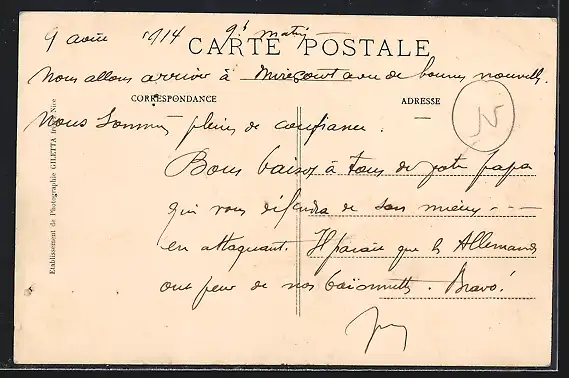 9 août 1914 9h matin
CARTE POSTALE
Nous allons arriver à Mirecourt avec de bonnes nouvelles.
CORRESPONDANCE
ADRESSE
Nous sommes pleins de confiance.
Bons baisers à tous de votre papa
qui vous défendra de son mieux
en attaquant. Il paraît que les Allemands
ont peur de nos baïonnettes. Bravo!
Etablissement de Photographie GILETTA Nice